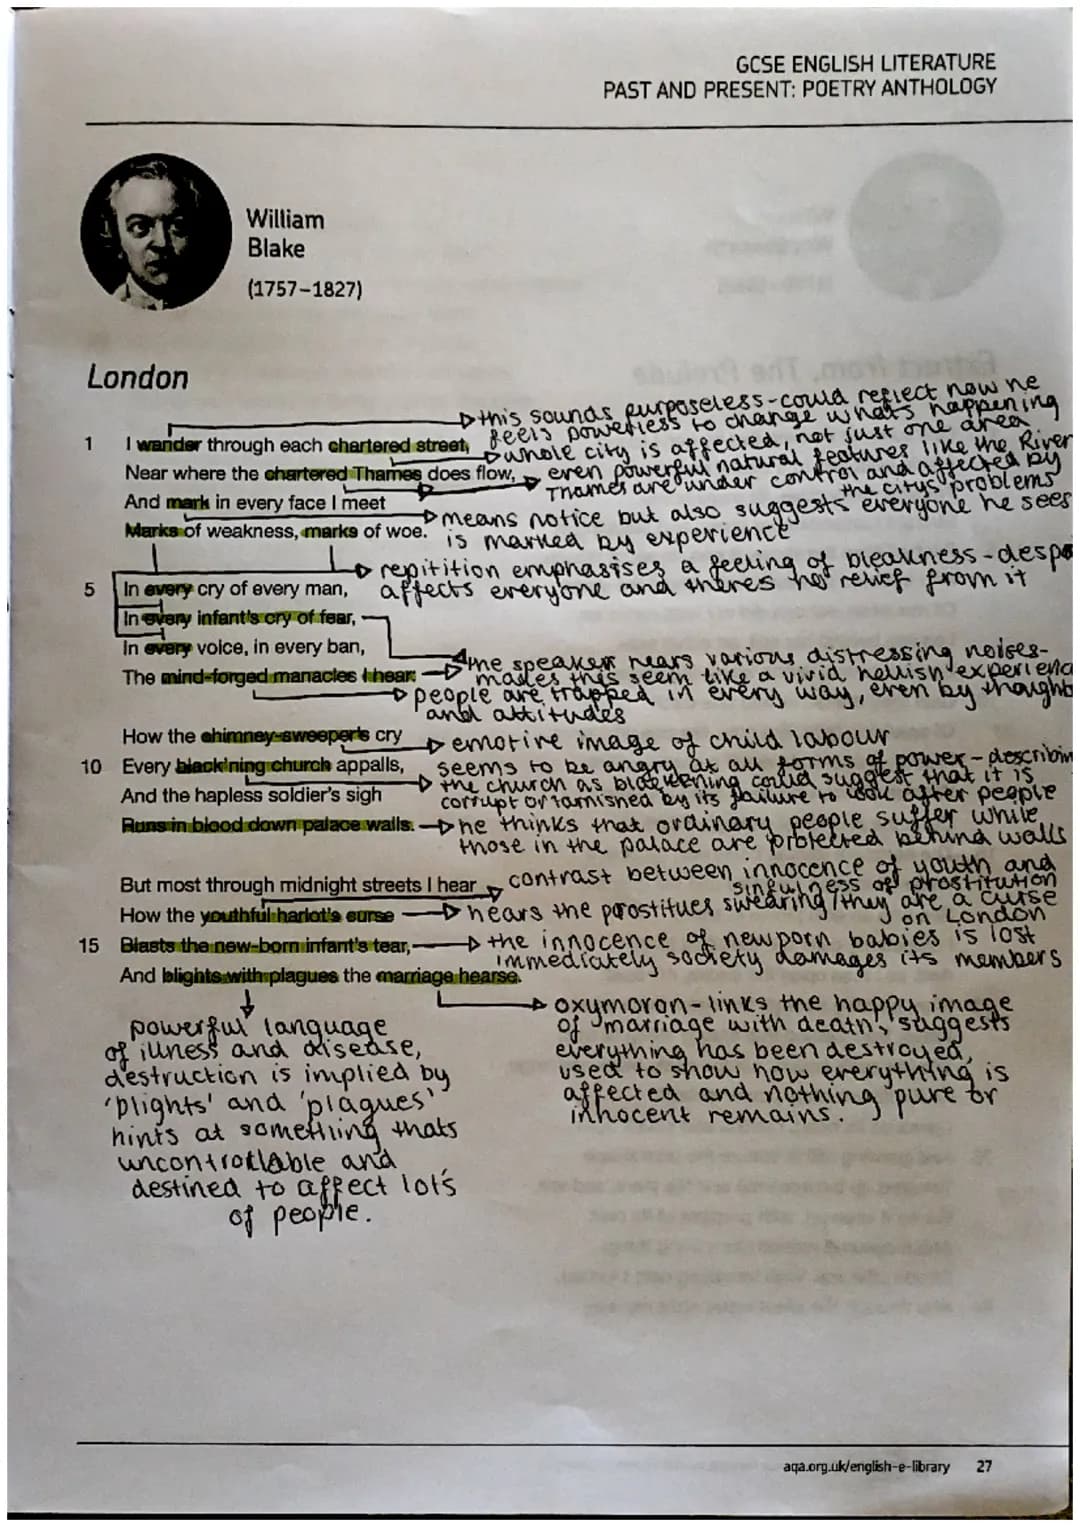 GCSE ENGLISH LITERATURE
PAST AND PRESENT: POETRY ANTHOLOGY
William
Blake
(1757–1827)
London
this sounds purposeless - could reflect how he
feels powerless to change whats happening
1 I wander through each chartered street,
whole city is affected, not just one area
Near where the chartered Thames does flow,
even powerful natural features like the River
Thames are under control and affected by
the citys problems
And mark in every face I meet
means notice but also suggests everyone he sees
is marked by experience
Marks of weakness, marks of woe.
repitition emphasises a feeling of bleakness - despa
affects everyone and theres no relief from it
5 In every cry of every man,
In every infant's cry of fear,
In every voice, in every ban,
the speaker hears various distressing noises-
makes this seem like a vivid hellish experienc
The mind-forged manacles I hear:
people are trapped in every way, even by thought
and attitudes
How the chimney-sweeper's cry
emotive image of child labour
10 Every black'ning church appalls,
seems to be angry at all forms of power - describin
the church as blackening could suggest that it is
corrupt or tarnished by its failure to look after people
And the hapless soldier's sigh
Runs in blood down palace walls.
he thinks that ordinary people suffer while
those in the palace are protected behind walls
But most through midnight streets I hear
contrast between innocence of youth and
sinfulness of prostitution
How the youthful harlot's curse
hears the prostitues swearing/they are a curse
on London
15 Blasts the new-born infant's tear,
the innocence of newborn babies is lost
immediately society damages its members
And blights with plagues the marriage hearse.
powerful language
of illness and disease,
destruction is implied by
'blights' and 'plagues'
hints at something thats
uncontrollable and
destined to affect lots
of people.
oxymoron - links the happy image
of marriage with death, suggests
everything has been destroyed,
used to show how everything is
affected and nothing pure or
innocent remains.
aqa.org.uk/english-e-library 27